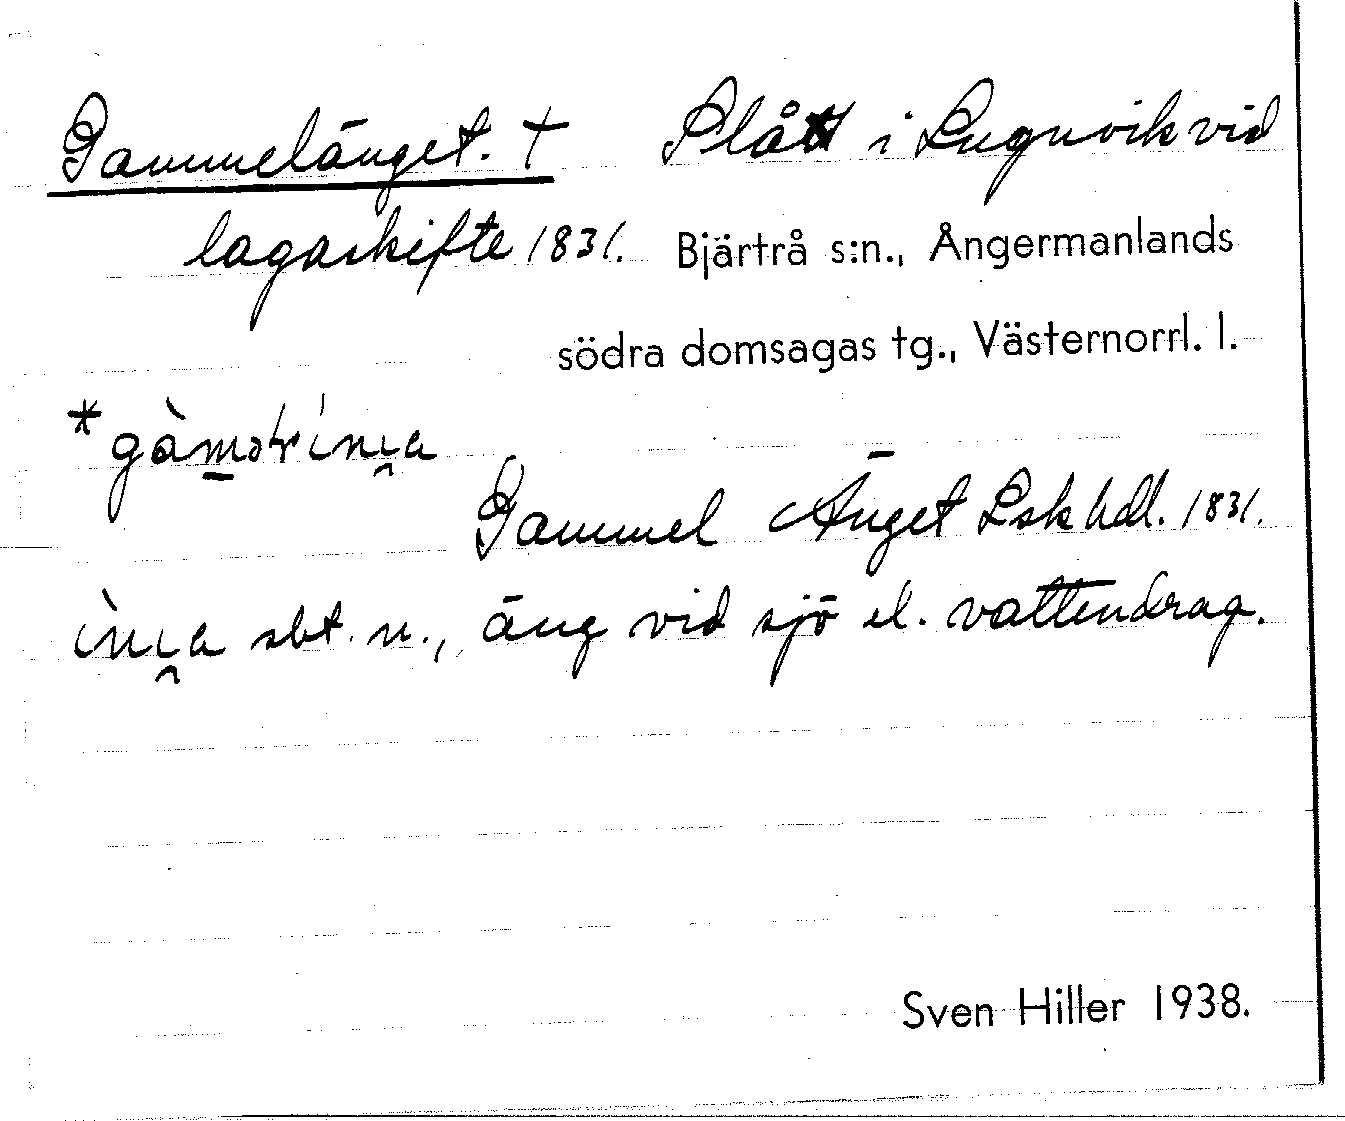 Gammelänget. † Plått i Lugnvik vid
lagaskifte 1831. Bjärtrå s:n., Ångermanlands
södra domsagas tg., Västernorrl. l.
Gammel Änget Lsk hdl. 1831.
sbt. n., äng vid sjö el. vattendrag.
Sven Hiller 1938.